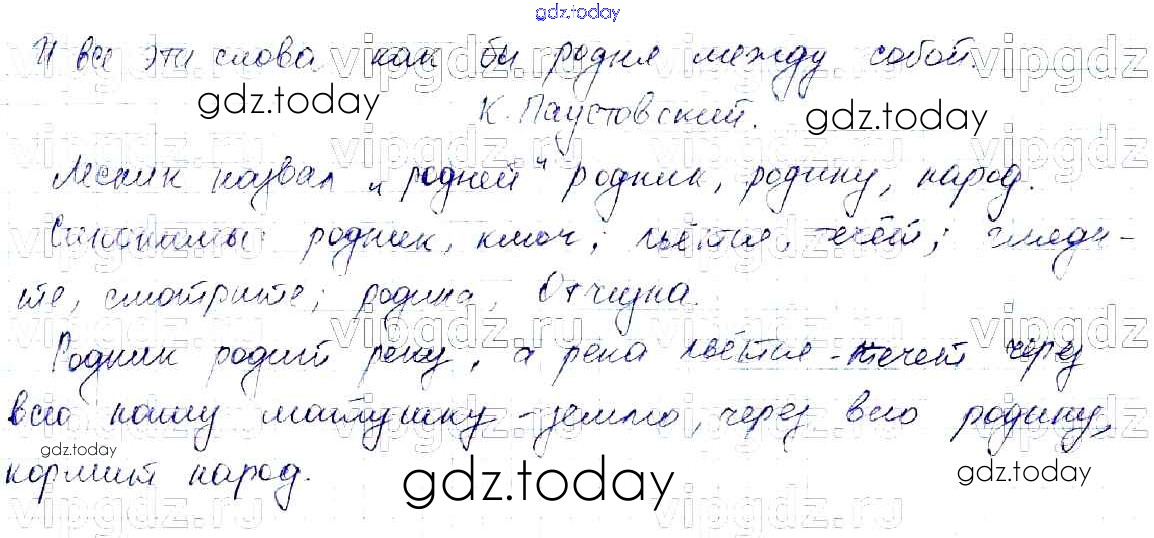 gdz.today
И все эти слова как бы родня между собой.
gdz.today К. Паустовский. gdz.today
Лесник назвал „родней" родник, родину, народ.
Синонимы: родник, ключ; льётся, течёт; гляди-
те, смотрите; родина, Отчизна.
Родник родит реку, а река льётся-течет через
всю нашу матушку-землю, через всю родину,
gdz.today кормит народ. gdz.today gdz.today
vipgdz.ru